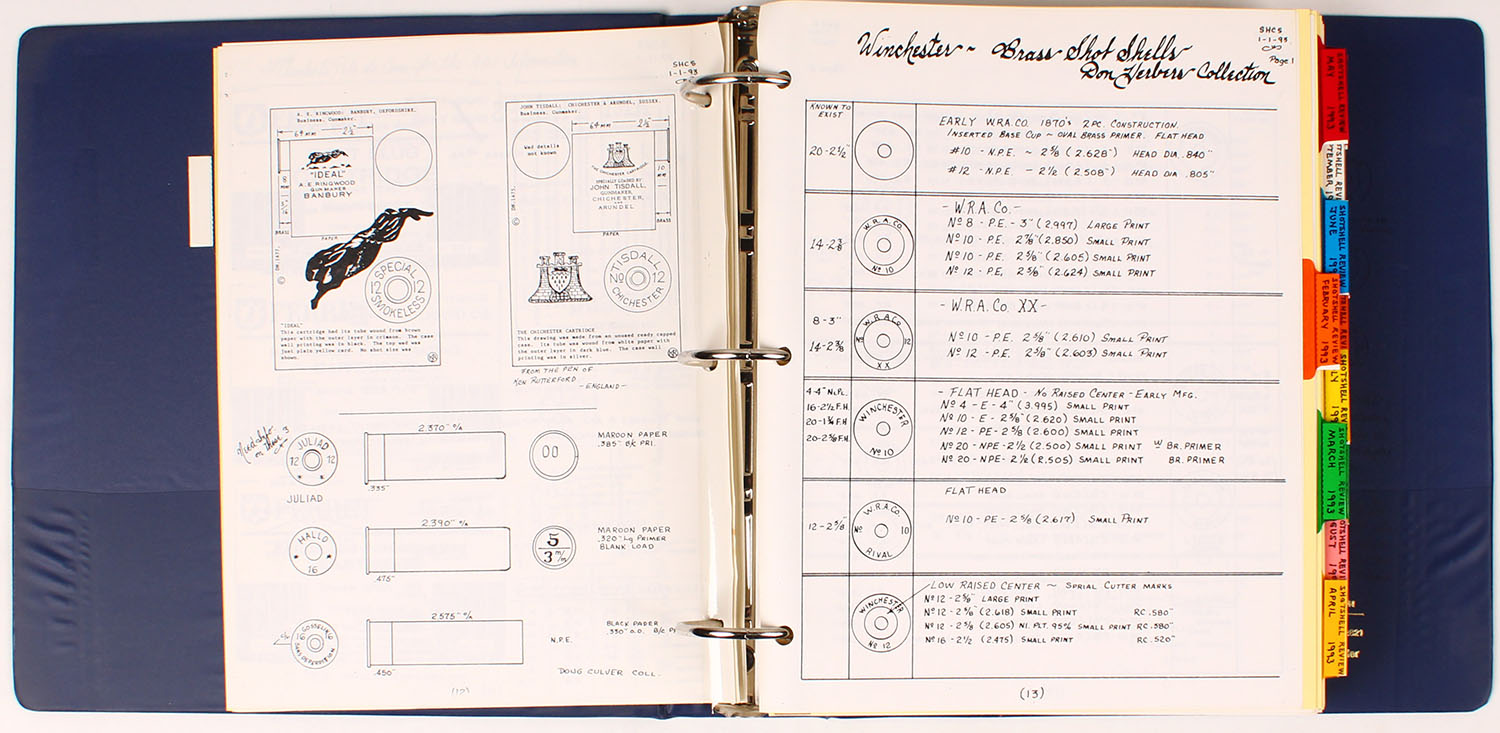 SHCS
1-1-93
A. E. RINGWOOD: BANBURY, OXFORDSHIRE.
Business. Gunmaker.
64 mm 2½"
"IDEAL"
A. E. RINGWOOD
GUN MAKER
BANBURY
BRASS
PAPER
© DM.1977.
SPECIAL
12 12
SMOKELESS
"IDEAL"
This cartridge had its tube wound from brown
paper with the outer layer in crimson. The case
wall printing was in black. The top wad was
just plain yellow card. No shot size was
shown.
JOHN TISDALL: CHICHESTER & ARUNDEL, SUSSEX.
Business. Gunmaker.
64 mm 2½"
Wad details
not known
THE CHICHESTER CARTRIDGE
SPECIALLY LOADED BY
JOHN TISDALL,
GUNMAKER,
CHICHESTER,
AND
ARUNDEL
10
mm
BRASS
PAPER
© DM.1977.
TISDALL
Nº 12
CHICHESTER
THE CHICHESTER CARTRIDGE
This drawing was made from an unused ready capped
case. Its tube was wound from white paper with
the outer layer in dark blue. The case wall
printing was in silver.
FROM THE PEN OF
KEN RUTTERFORD
- ENGLAND -
JULIAD
12 12
JULIAD
2.370" o/a
.335"
00
MAROON PAPER
.385" B/C PRI.
HALLO
16
2.390" o/a
.475"
5
3 m/m
MAROON PAPER
.320" Lg PRIMER
BLANK LOAD
GOSSELIN
16
SANS DEPERDITION
2.575" o/a
.450"
N.P.E.
BLACK PAPER
.330" O.D. B/C
DOUG CULVER COLL.
Winchester ~ Brass Shot Shells
Don Verbers Collection
SHCS
1-1-93
Page 1
KNOWN TO
EXIST
20-2½"
EARLY W.R.A. CO. 1870's 2 PC. CONSTRUCTION.
INSERTED BASE CUP ~ OVAL BRASS PRIMER. FLAT HEAD
#10 - N.P.E. ~ 2⅝ (2.628") HEAD DIA .840"
#12 - N.P.E. - 2½ (2.508") HEAD DIA .805"
14-2⅜
W.R.A. Co
Nº 10
- W.R.A. Co. -
Nº 8 - P.E. - 3" (2.997) LARGE PRINT
Nº 10 - P.E. 2⅞" (2.850) SMALL PRINT
Nº 10 - P.E. 2⅝" (2.605) SMALL PRINT
Nº 12 - P.E. 2⅝" (2.624) SMALL PRINT
8-3"
14-2⅜
W.R.A. Co
Nº 12
XX
- W.R.A. Co. XX -
Nº 10 - P.E. 2⅝" (2.610) SMALL PRINT
Nº 12 - P.E. 2⅝" (2.603) SMALL PRINT
4-4" N.PL.
16-2½ F.H.
20-1¾ F.H
20-2⅜ F.H.
WINCHESTER
Nº 10
- FLAT HEAD - NO RAISED CENTER - EARLY MFG.
Nº 4 - E - 4" (3.995) SMALL PRINT
Nº 10 - E - 2⅝" (2.620) SMALL PRINT
Nº 12 - PE - 2⅝" (2.600) SMALL PRINT
Nº 20 - NPE - 2½ (2.500) SMALL PRINT W BR. PRIMER
Nº 20 - NPE - 2½ (2.505) SMALL PRINT BR. PRIMER
12-2⅝"
W.R.A. Co.
Nº 10
RIVAL
FLAT HEAD
Nº 10 - PE - 2⅝ (2.617) SMALL PRINT
WINCHESTER
Nº 12
LOW RAISED CENTER ~ SPRIAL CUTTER MARKS
Nº 12 - 2⅝" LARGE PRINT
Nº 12 - 2⅝" (2.618) SMALL PRINT RC .580"
Nº 12 - 2⅝ (2.605) NI. PLT. 95% SMALL PRINT RC .580"
Nº 16 - 2½ (2.475) SMALL PRINT RC .520"
(13)
SHOTSHELL REVIEW
MAY 1993
SHOTSHELL REVIEW
JUNE
SHOTSHELL REVIEW
FEBRUARY 1993
SHOTSHELL REVIEW
MARCH 1993
SHOTSHELL REVIEW
APRIL 1993